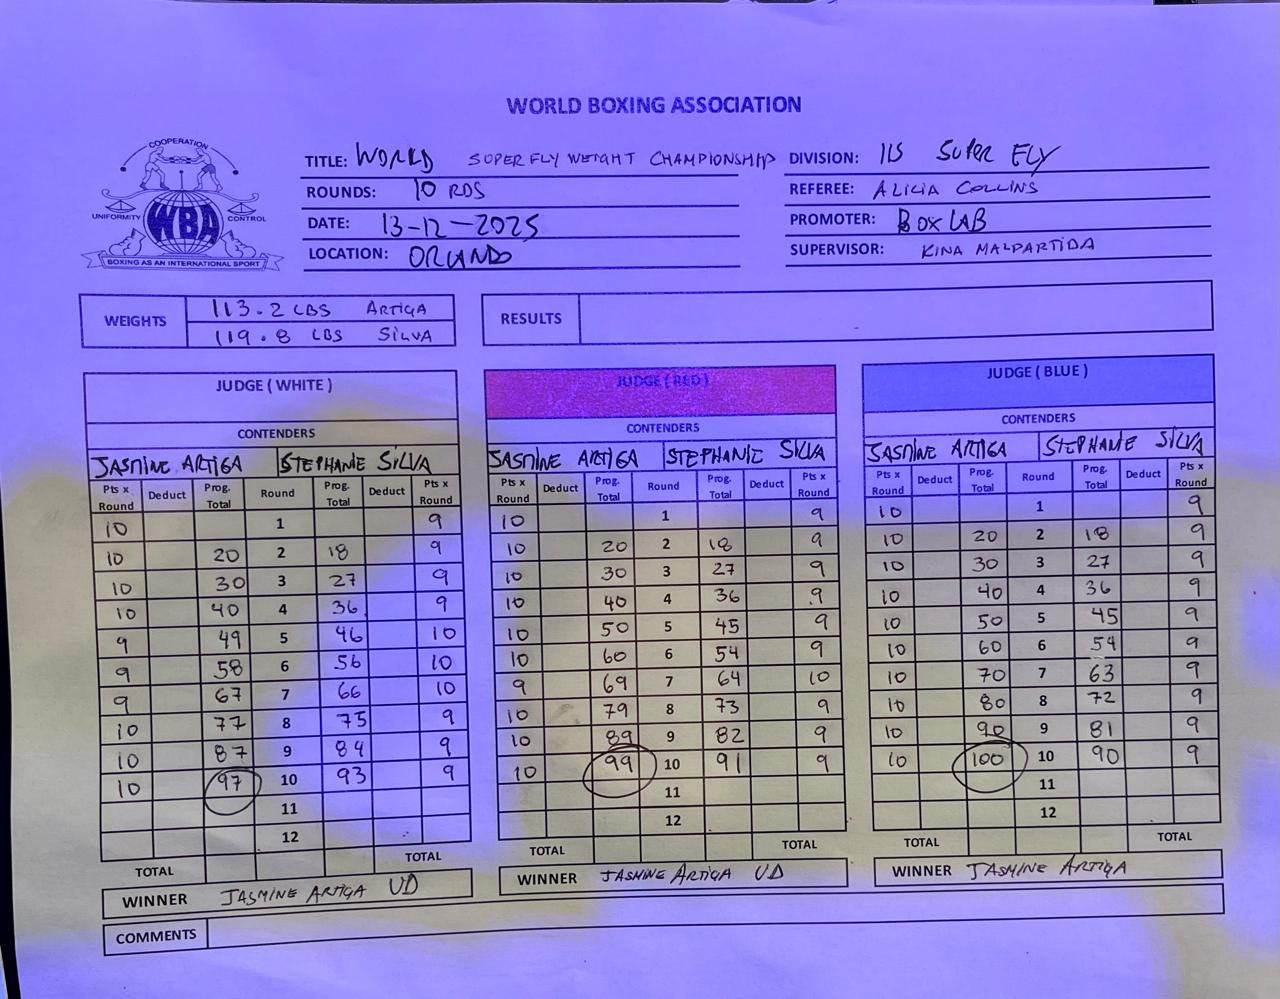 WORLD BOXING ASSOCIATION
COOPERATION
UNIFORMITY WBA CONTROL
BOXING AS AN INTERNATIONAL SPORT
TITLE: WORLD SUPER FLY WEIGHT CHAMPIONSHIP DIVISION: 115 SUPER FLY
ROUNDS: 10 RDS REFEREE: ALICIA COLLINS
DATE: 13-12-2025 PROMOTER: BOX LAB
LOCATION: ORLANDO SUPERVISOR: KINA MALPARTIDA
WEIGHTS 113.2 LBS ARTIGA RESULTS
119.8 LBS SILVA
JUDGE ( WHITE ) JUDGE ( RED ) JUDGE ( BLUE )
CONTENDERS CONTENDERS CONTENDERS
JASMINE ARTIGA STEPHANIE SILVA JASMINE ARTIGA STEPHANIE SILVA JASMINE ARTIGA STEPHANIE SILVA
Pts x Round Deduct Prog. Total Round Prog. Total Deduct Pts x Round Pts x Round Deduct Prog. Total Round Prog. Total Deduct Pts x Round Pts x Round Deduct Prog. Total Round Prog. Total Deduct Pts x Round
10 1 9 10 1 9 10 1 9
10 20 2 18 9 10 20 2 18 9 10 20 2 18 9
10 30 3 27 9 10 30 3 27 9 10 30 3 27 9
10 40 4 36 9 10 40 4 36 9 10 40 4 36 9
9 49 5 46 10 10 50 5 45 9 10 50 5 45 9
9 58 6 56 10 10 60 6 54 9 10 60 6 54 9
9 67 7 66 10 9 69 7 64 10 10 70 7 63 9
10 77 8 75 9 10 79 8 73 9 10 80 8 72 9
10 87 9 84 9 10 89 9 82 9 10 90 9 81 9
10 97 10 93 9 10 99 10 91 9 10 100 10 90 9
11 11 11
12 12 12
TOTAL TOTAL TOTAL TOTAL TOTAL TOTAL
WINNER JASMINE ARTIGA UD WINNER JASMINE ARTIGA UD WINNER JASMINE ARTIGA
COMMENTS